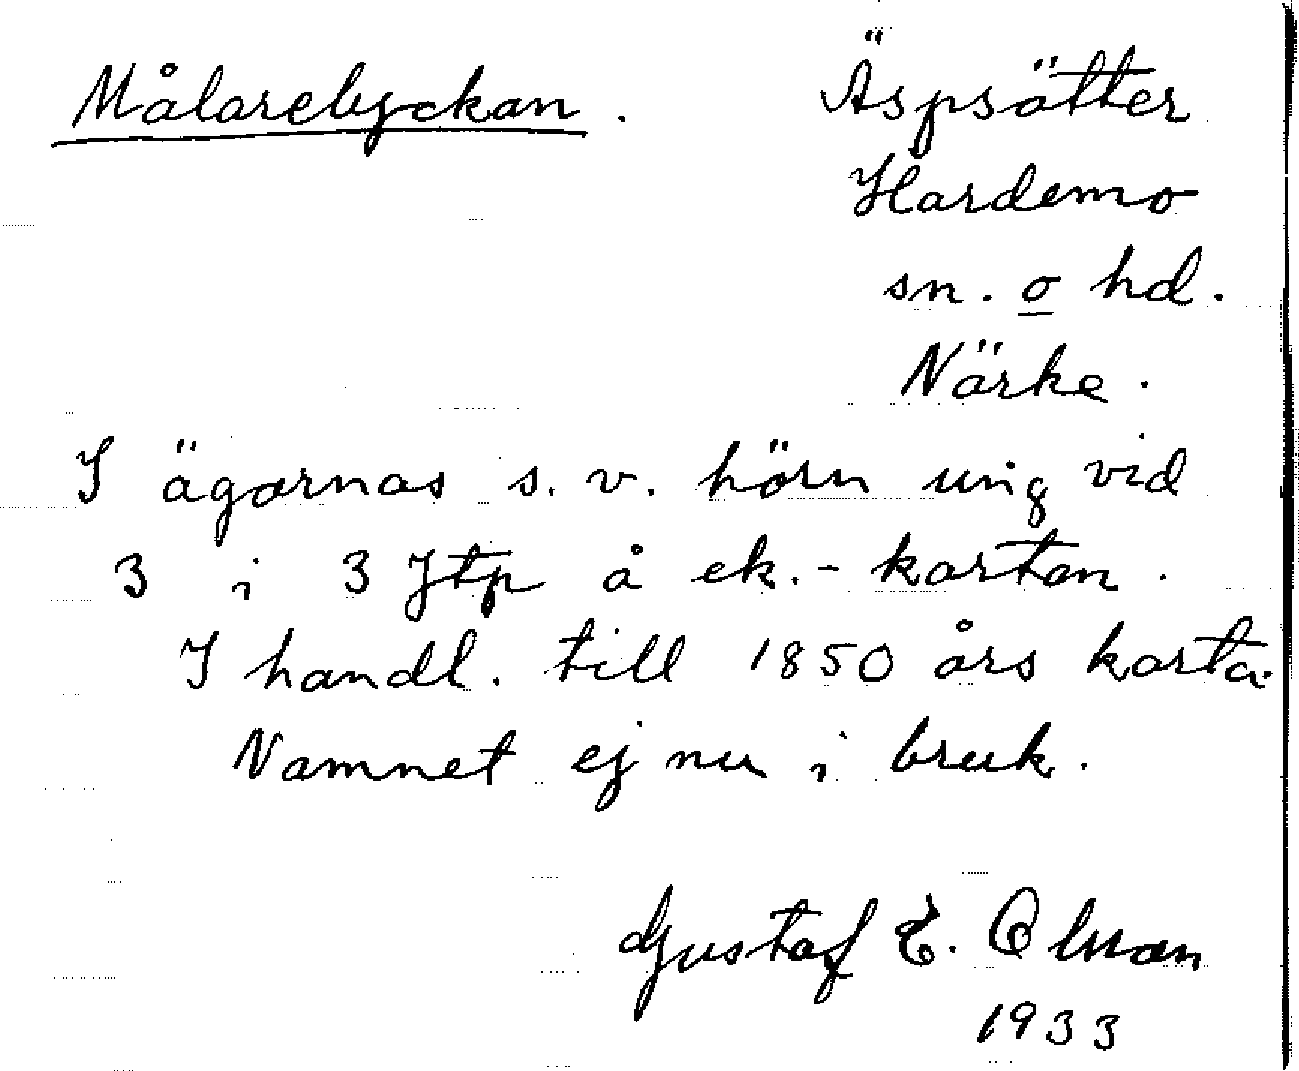 Målarelyckan. Äspsätter
Hardemo
sn. o hd.
Närke.
I ägornas s. v. hörn ung vid
3 i 3 Jtp å ek.-kartan.
I handl. till 1850 års karta.
Namnet ej nu i bruk.
Gustaf E. Olman
1933